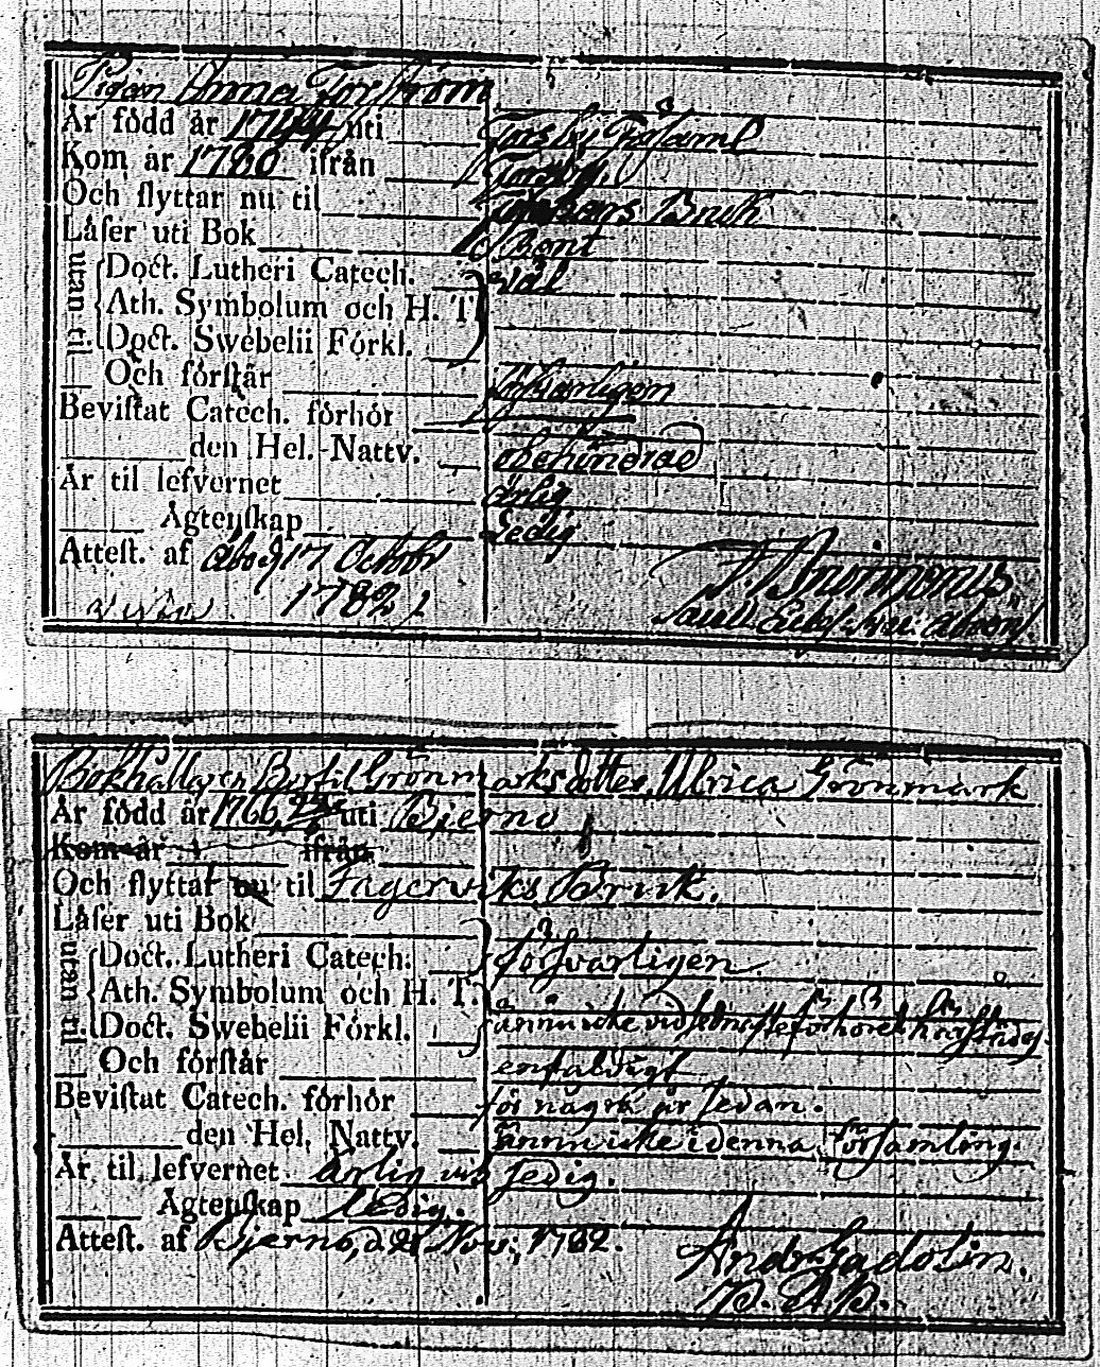 Pigan Anna Forström
Är född år 1744 uti Torsby
Kom år 1780 ifrån Torsby
Och flyttar nu til Bruk
Läser uti Bok
utan til. Doct. Lutheri Catech. wäl
Ath. Symbolum och H. T.
Doct. Swebelii Förkl.
Och förstår förswarligen
Bevistat Catech. förhör
den Hel. Nattv. obehindrad
Är til lefvernet ärlig
Ägtenskap Ledig
Attest. af Åbo d 17 Octobr
1782
Bokhållaren Bertil Grönmarks dotter Ulrica Grönmark
Är född år 1766 uti Bjerno
Kom år ifrån
Och flyttar nu til Fagerviks Bruk.
Läser uti Bok
utan til. Doct. Lutheri Catech. försvarligen.
Ath. Symbolum och H. T. ännu icke vid
Doct. Swebelii Förkl.
Och förstår enfaldigt
Bevistat Catech. förhör för några år sedan.
den Hel. Nattv. ännu icke i denna församling.
Är til lefvernet ärlig och sedig.
Ägtenskap ledig.
Attest. af Bjerno, d 28 Nov: 1782.
Andr Gadolin.